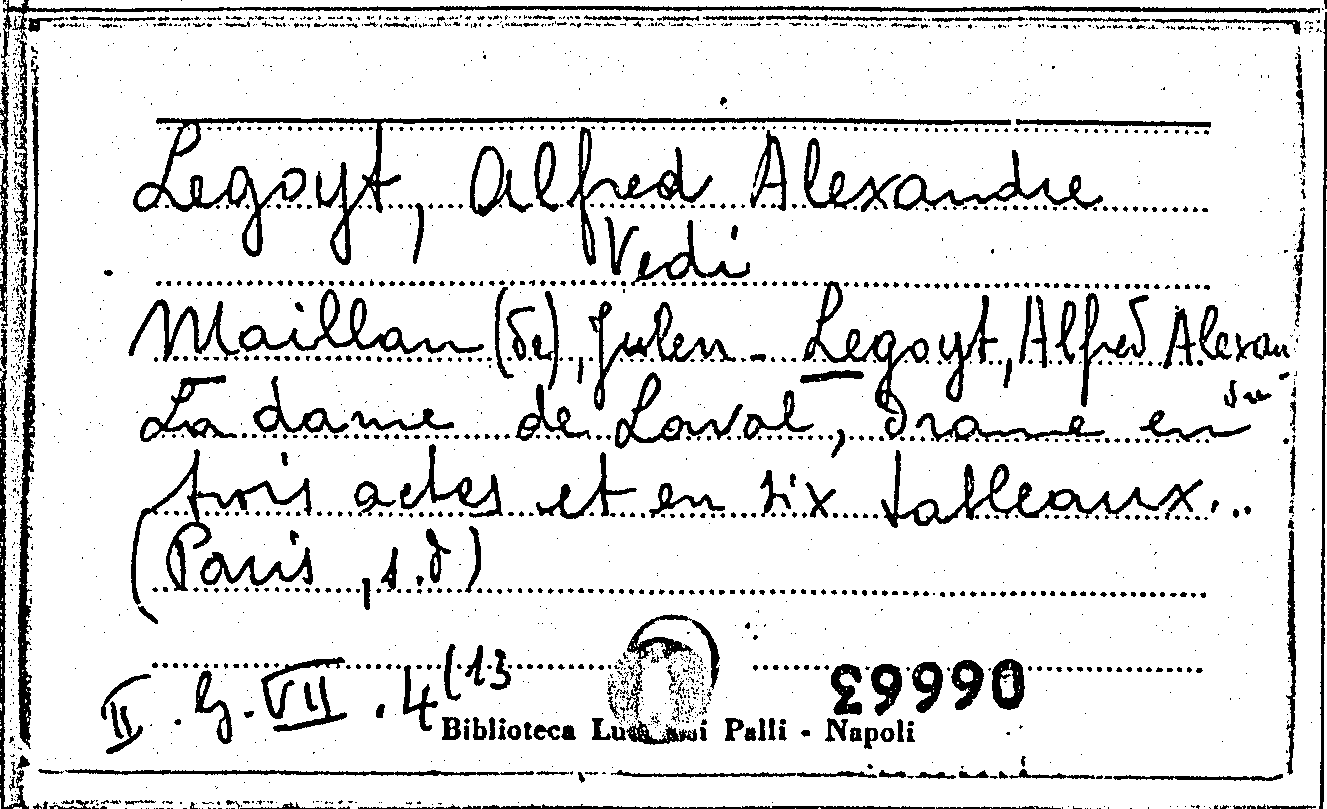 Legoyt, Alfred Alexandre
Vedi
Maillan (de), Julien - Legoyt, Alfred Alexan
dre
La dame de Laval, drame en
trois actes et en six tableaux...
(Paris, s.d)
II. G. VII. 4(13
06663
Biblioteca Lucchesi Palli - Napoli